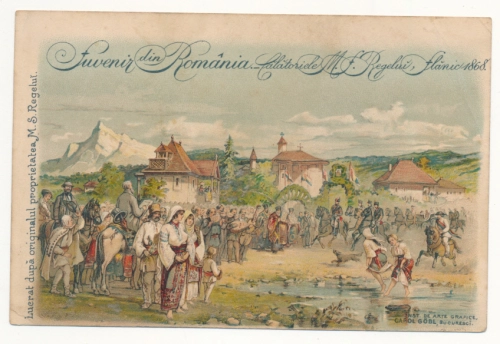 Suvenir din România. Călătoriile M. S. Regelui. Slănic 1868.
Lucrat după originalul proprietatea M. S. Regelui.
INST. DE ARTE GRAFICE,
CAROL GÖBL, BUCURESCI.